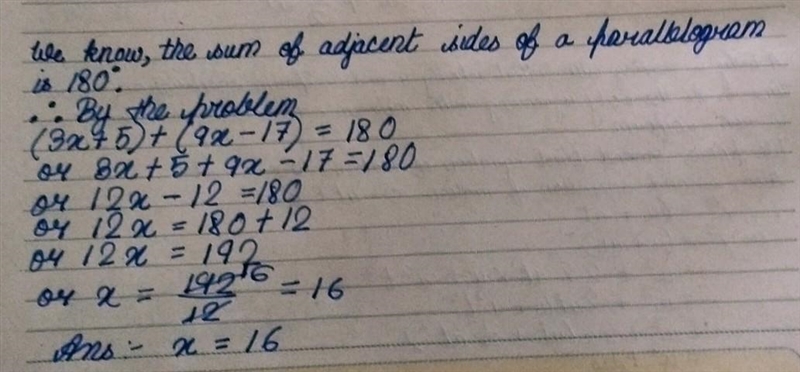 We know, the sum of adjacent sides of a parallelogram
is 180°.
∴ By the problem
(3x+5)+(9x-17) = 180
or 3x+5+9x-17=180
or 12x-12=180
or 12x=180+12
or 12x = 192
or x = 192/12 16 = 16
Ans:- x = 16